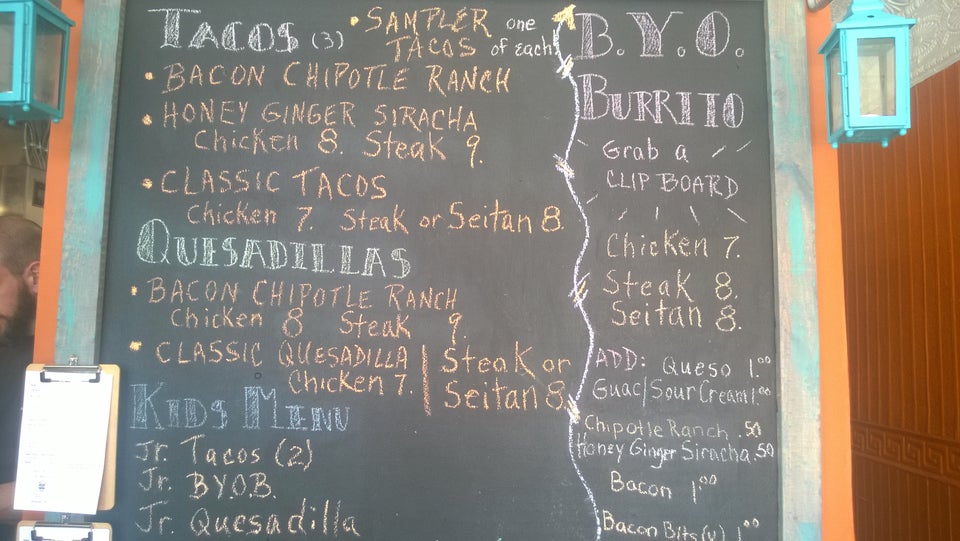 TACOS (3) • SAMPLER one
TACOS of each
• BACON CHIPOTLE RANCH
• HONEY GINGER SIRACHA
Chicken 8. Steak 9.
• CLASSIC TACOS
Chicken 7. Steak or Seitan 8.
QUESADILLAS
• BACON CHIPOTLE RANCH
Chicken 8 Steak 9.
• CLASSIC QUESADILLA
Chicken 7.
Steak or
Seitan 8.
KIDS MENU
Jr. Tacos (2)
Jr. B.Y.O.B.
Jr. Quesadilla
B.Y.O.
BURRITO
Grab a
CLIP BOARD
Chicken 7.
Steak 8.
Seitan 8.
ADD: Queso 1.00
Guac/Sour Cream 1.00
Chipotle Ranch .50
Honey Ginger Siracha .50
Bacon 1.00
Bacon Bits (v) 1.00